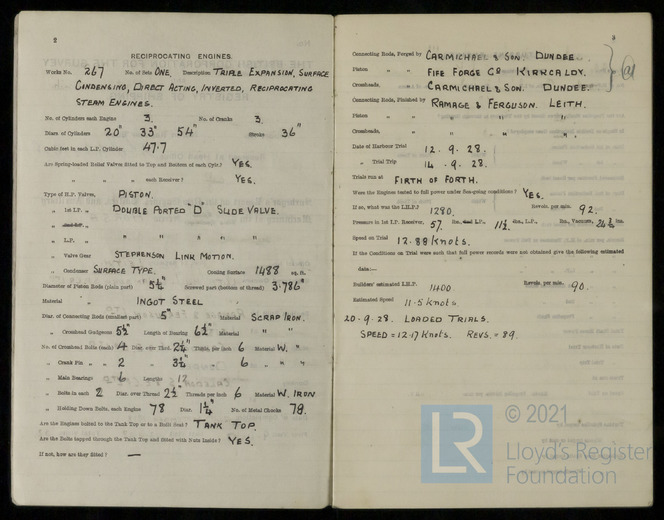 2
RECIPROCATING ENGINES.
Works No. 267 No. of Sets ONE. Description TRIPLE EXPANSION, SURFACE
CONDENSING, DIRECT ACTING, INVERTED, RECIPROCATING
STEAM ENGINES.
No. of Cylinders each Engine 3. No. of Cranks 3.
Diars. of Cylinders 20" 33" 54" Stroke 36"
Cubic feet in each L.P. Cylinder 47.7
Are Spring-loaded Relief Valves fitted to Top and Bottom of each Cylr.? YES.
„ „ „ each Receiver? YES.
Type of H.P. Valves, PISTON.
„ 1st I.P. „ DOUBLE PORTED "D" SLIDE VALVE.
„ 2nd I.P. „
„ L.P. „ " " " " "
„ Valve Gear STEPHENSON LINK MOTION.
„ Condenser SURFACE TYPE. Cooling Surface 1488 sq. ft.
Diameter of Piston Rods (plain part) 5½" Screwed part (bottom of thread) 3.786"
Material „ INGOT STEEL
Diar. of Connecting Rods (smallest part) 5" Material SCRAP IRON.
„ Crosshead Gudgeons 5½" Length of Bearing 6½" Material " "
No. of Crosshead Bolts (each) 4 Diar. over Thrd. 2¼" Thrds. per inch 6 Material W. "
„ Crank Pin „ „ 2 „ 3¼" „ 6 „ " "
„ Main Bearings 6 Lengths 12
„ Bolts in each 2 Diar. over Thread 2½" Threads per inch 6 Material W. IRON
„ Holding Down Bolts, each Engine 78 Diar. 1¼" No. of Metal Chocks 78.
Are the Engines bolted to the Tank Top or to a Built Seat? TANK TOP.
Are the Bolts tapped through the Tank Top and fitted with Nuts Inside? YES.
If not, how are they fitted? —
3
Connecting Rods, Forged by CARMICHAEL & SON. DUNDEE.
Piston „ „ FIFE FORGE Co KIRKCALDY.
Crossheads, „ CARMICHAEL & SON. DUNDEE.
Connecting Rods, Finished by RAMAGE & FERGUSON. LEITH.
Piston „ „ " " "
Crossheads, „ " " "
Date of Harbour Trial 12.9.28.
„ Trial Trip 14.9.28.
Trials run at FIRTH OF FORTH.
Were the Engines tested to full power under Sea-going conditions? YES.
If so, what was the I.H.P.? 1280. Revols. per min. 92.
Pressure in 1st I.P. Receiver, 57 lbs., 2nd I.P., 11½ lbs., L.P., lbs., Vacuum, 24¾ ins.
Speed on Trial 12.88 Knots.
If the Conditions on Trial were such that full power records were not obtained give the following estimated
data:—
Builders' estimated I.H.P. 1400 Revols. per min. 90.
Estimated Speed 11.5 Knots.
20.9.28. LOADED TRIALS.
SPEED = 12.17 Knots. REVS. = 89.
LR
© 2021
Lloyd's Register
Foundation